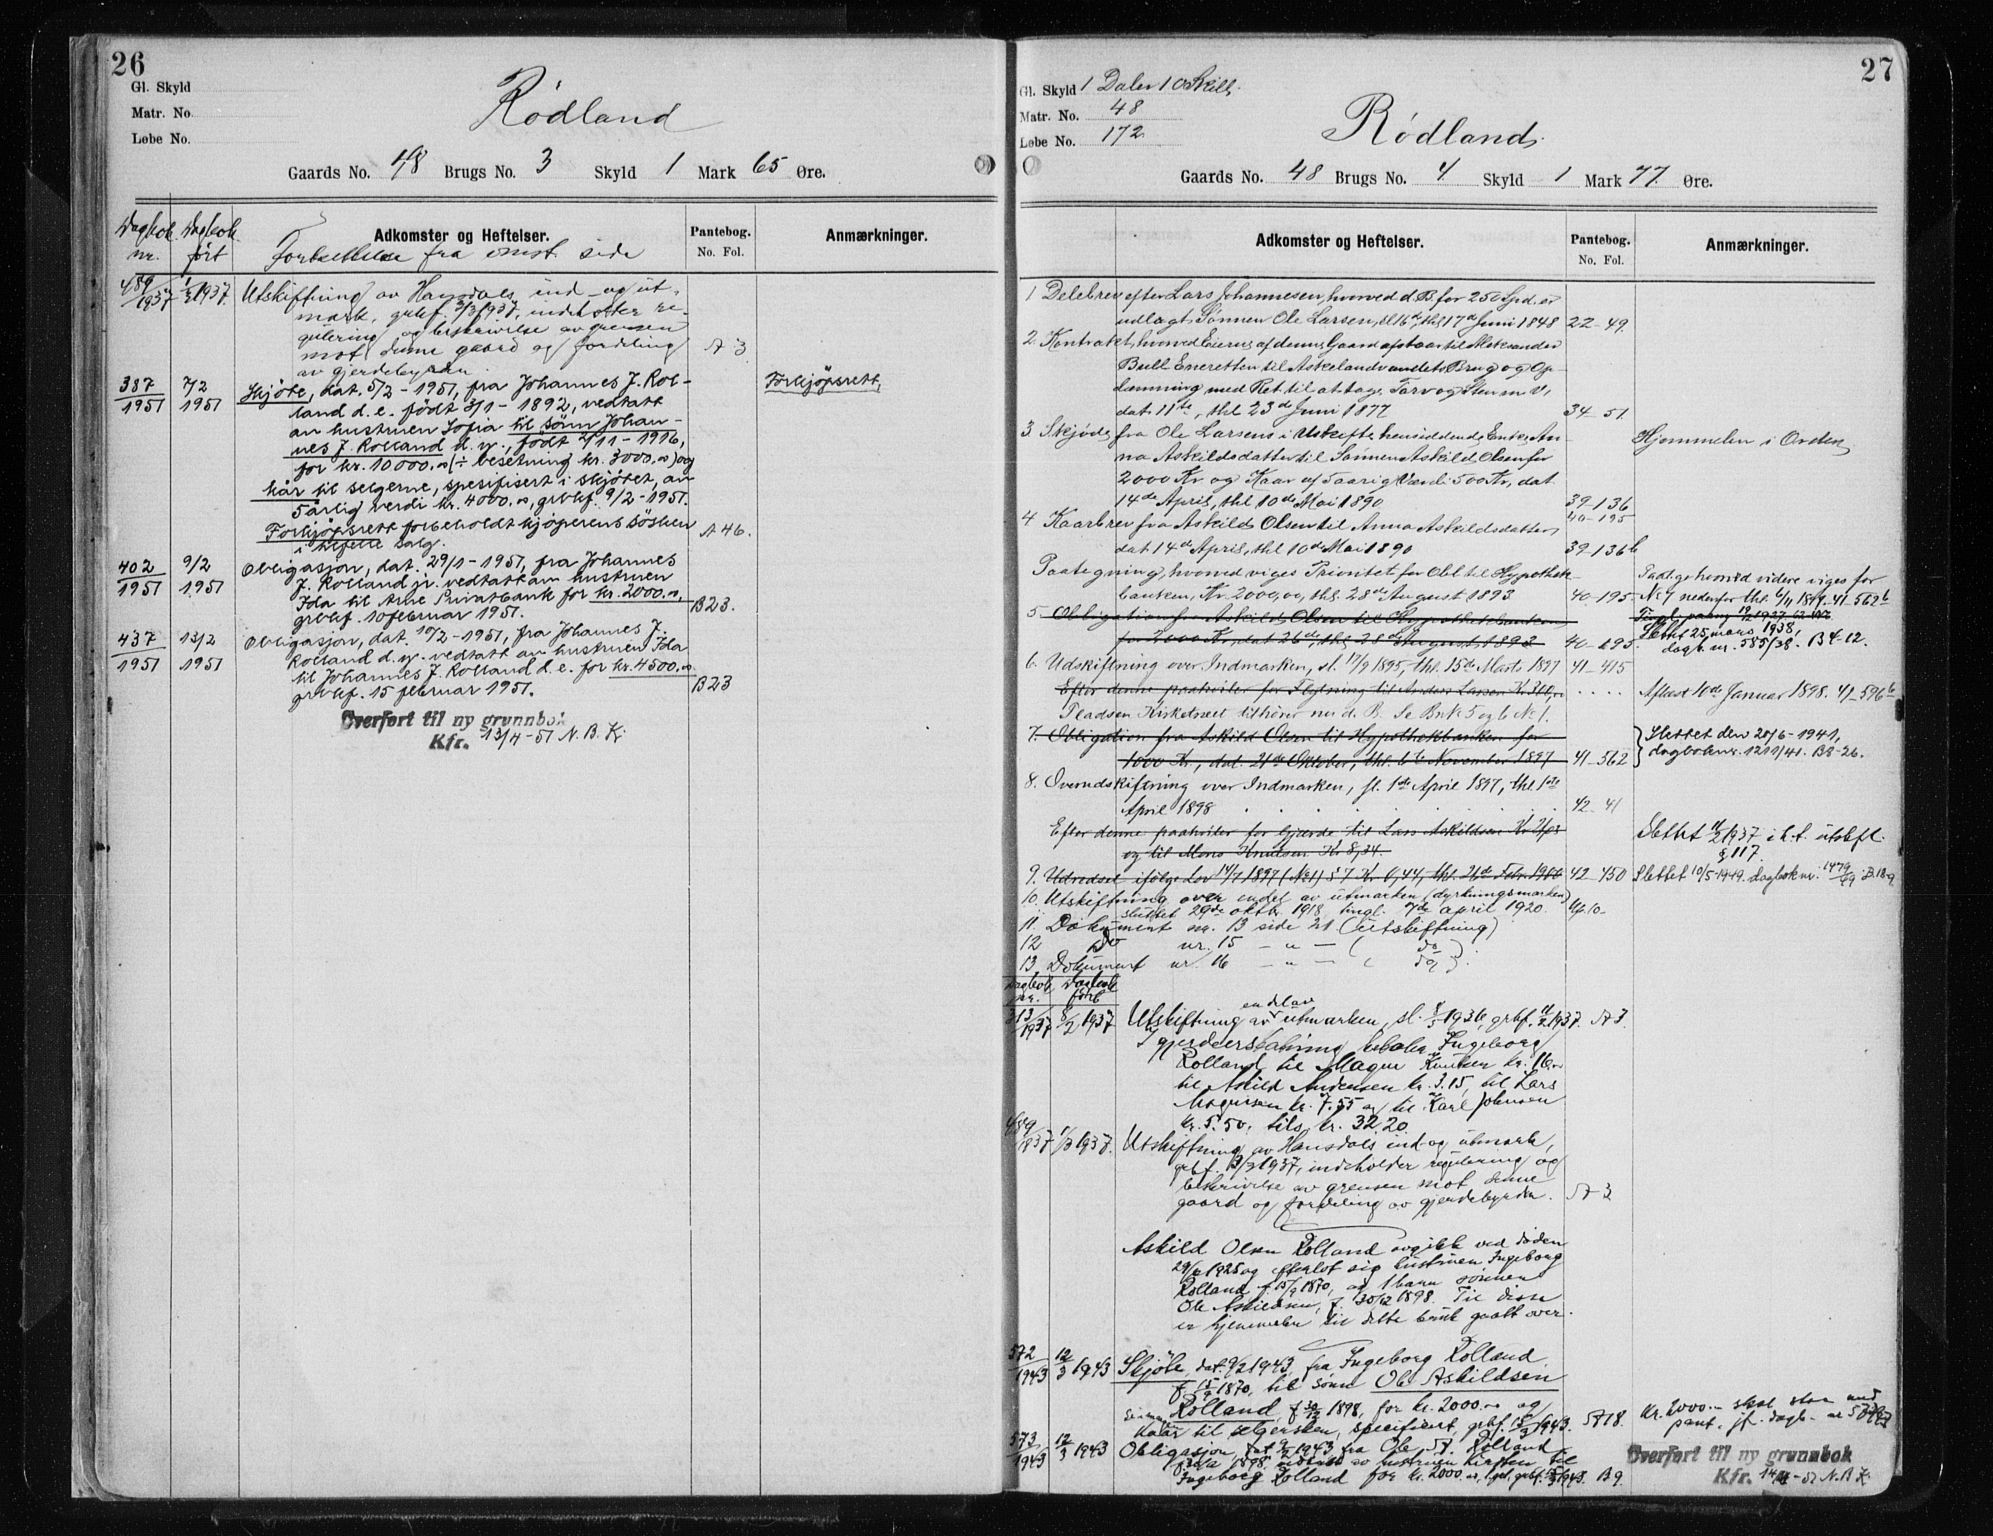 26
Gl. Skyld
Matr. No
Løbe No.
Rödland
Gaards No. 48 Brugs No. 3 Skyld 1 Mark 65 Øre.
Dagbok nr.
Dagbok fört
Adkomster og Heftelser.
Pantebog.
No. Fol.
Anmærkninger.
Fortsettelse fra omst. side
489/1937 1/3 1937 Utskiftning av Hausdals ind- og ut-
mark, grbf. 3/3 1937, indholder re-
gulering og beskrivelse av grensen
mot denne gaard og fordeling A 3
av gjerdebyrden.
387/1951 7/2 1951 Skjöte, dat. 5/2-1951, fra Johannes J. Rol- Forkjöpsrett.
land d.e. födt 3/1-1892, vedtatt
av hustruen Sofia til sönn Johan-
nes J. Rolland d.y., födt 4/11-1916,
for kr. 10 000.00 (÷ besetning kr. 3000.00) og
kår til selgerne, spesifisert i skjötet, av
5 årlig verdi kr. 4000.00, grbf. 9/2-1951.
Forkjöpsrett forbeholdt kjöperens sösken A 46.
i tilfelle salg.
402/1951 9/2 1951 Obligasjon, dat. 29/1-1951, fra Johannes
J. Rolland jr. vedtatt av hustruen
Ida til Arne Privatbank for kr. 2000.00, B 23.
grbf. 10 februar 1951.
437/1951 13/2 1951 Obligasjon, dat 10/2-1951, fra Johannes J.
Rolland d.y. vedtatt av hustruen Ida
til Johannes J. Rolland d.e. for kr. 4500.00
grbf. 15 februar 1951. B 23
Overført til ny grunnbok
Kfr. 13/4-51 N.B. Kr.
27
Gl. Skyld 1 Daler 10 Skill.
Matr. No. 48
Løbe No. 172
Rödland.
Gaards No. 48 Brugs No. 4 Skyld 1 Mark 77 Øre.
Adkomster og Heftelser.
Pantebog.
No. Fol.
Anmærkninger.
1 Delebrev efter Lars Johannesen, hvorved d. B. for 250 Spd. er
udlagt Sønnen Ole Larsen, sl 16de, thl 17de Juni 1848 22-49.
2. Kontrakt, hvorved Eierne af denne Gaard afstaar til Aleksander
Bull Eneretten til Askelandsvandets Brug og Op-
demning med Ret til at tage Torv og Sten m v,
dat 11te, thl 23de Juni 1877 34-51.
3. Skjøde fra Ole Larsens i Uskifte hensiddende Enke An- Hjemmelen i Orden
na Askildsdatter til Sønnen Askild Olsen for
2000 Kr og Kaar af 5aarig Værdi 500 Kr, dat
14de April, thl 10de Mai 1890 39-136
40-195
4 Kaarbrev fra Askild Olsen til Anna Askildsdatter,
dat 14de April, thl 10de Mai 1890 39-136b
Paategning, hvorved viges Prioritet for Obl til Hypothek-
banken, Kr. 2000,00, thl. 28de August 1893 40-195
Paateg. hvorved videre viges for
No 7 nedenfor thl. 6/11 1897. 41-562b
5. Obligation fra Askild Olsen til Hypothekbanken
for 2000 Kr, dat 26de, thl 28de August 1893 40-195.
Slettet 25 mars 1938,
dagb. nr. 585/38. B 4-12.
6. Udskiftning over Indmarken, sl. 17/9 1895, thl. 15de Marts 1897 41-415
Efter denne paahviler for Flytning til Anders Larsen Kr 310,00 Aflæst 10de Januar 1898. 41-596b
Pladsen Kirketræet tilhører nu d. B. Se Bnk 5 og 6 No 1.
7. Obligation fra Askild Olsen til Hypothekbanken for
1000 Kr., dat. 21de Oktober, thl. 6te November 1897 41-562
Slettet den 20/6-1941,
dagboknr. 1211/41. B 8-26.
8. Overudskiftning over Indmarken, sl. 1ste April 1897, thl 1ste
April 1898 42-41
Efter denne paahviler for Gjerde til Lars Askildsen Kr
og til Mons Knutsen Kr 8,34.
Slettet 11/2 1937 i h.t. utskfl.
§ 117.
9. Udredsel ifølge Lov 14/7 1897 (No 1) § 7 Kr 0,44, thl. 21de Febr. 1900 42-450 Slettet 10/5-1949. Dagboknr. 1479/49 B 18-9
10. Utskiftning over endel av utmarken (dyrkningsmarken)
sluttet 29de oktbr 1918 tingl. 7de april 1920.
11. Dokument nr. 13 side 21 (Utskiftning)
12 Do nr. 15 - " - ( do )
13 Dokument nr. 16 - " - ( do ).
Dagbok nr.
Dagbok fört
313/1937 8/2 1937 Utskiftning av en del av utmarken, sl. 1936, grbf. 11/2 1937. A 3.
I gjerdeerstatning betaler Ingeborg
Rolland til Magne Knutsen kr. 16.00
til Askild Andersen kr. 3.15, til Lars
Mognsen kr. 7.55 og til Karl Johnsen
kr. 5.50, tils. kr. 32.20.
489/1937 1/3 1937. Utskiftning av Hausdals ind- og utmark,
grbf. 3/3 1937, indeholder regulering og
beskrivelse av grensen mot denne
gaard og fordeling av gjerdebyrden. A 3
Askild Olsen Rolland avgikk ved döden
1925 og efterlot sig hustruen Ingeborg
Rolland f. 15/9 1870, og 1 barn sönnen
Ole Askildsen, f. 30/12 1898. Til disse
er hjemmelen til dette bruk gaatt over.
572/1943 12/3 1943 Skjöte, dat. 9/2 1943 fra Ingeborg Rolland
f. 15/9 1870, til sönn Ole Askildsen
Rolland, f. 30/12 1898, for kr. 2000.00 og
kaar til selgersken, specificert, grbf. 15/3 1943. A 18.
Kr. 2000.- skal staa med
pant. jf. dagb. nr 573/43
573/1943 12/3 1943 Obligasjon, dat 9/2 1943 fra Ole A. Rolland
f. 30/12 1898, vedtatt av hustruen Kirsten til
Ingeborg Rolland for kr. 2000.00, grbf. 15/3 1943. B 9.
Overført til ny grunnbok
Kfr. 14/4-51 N.B. Kr.